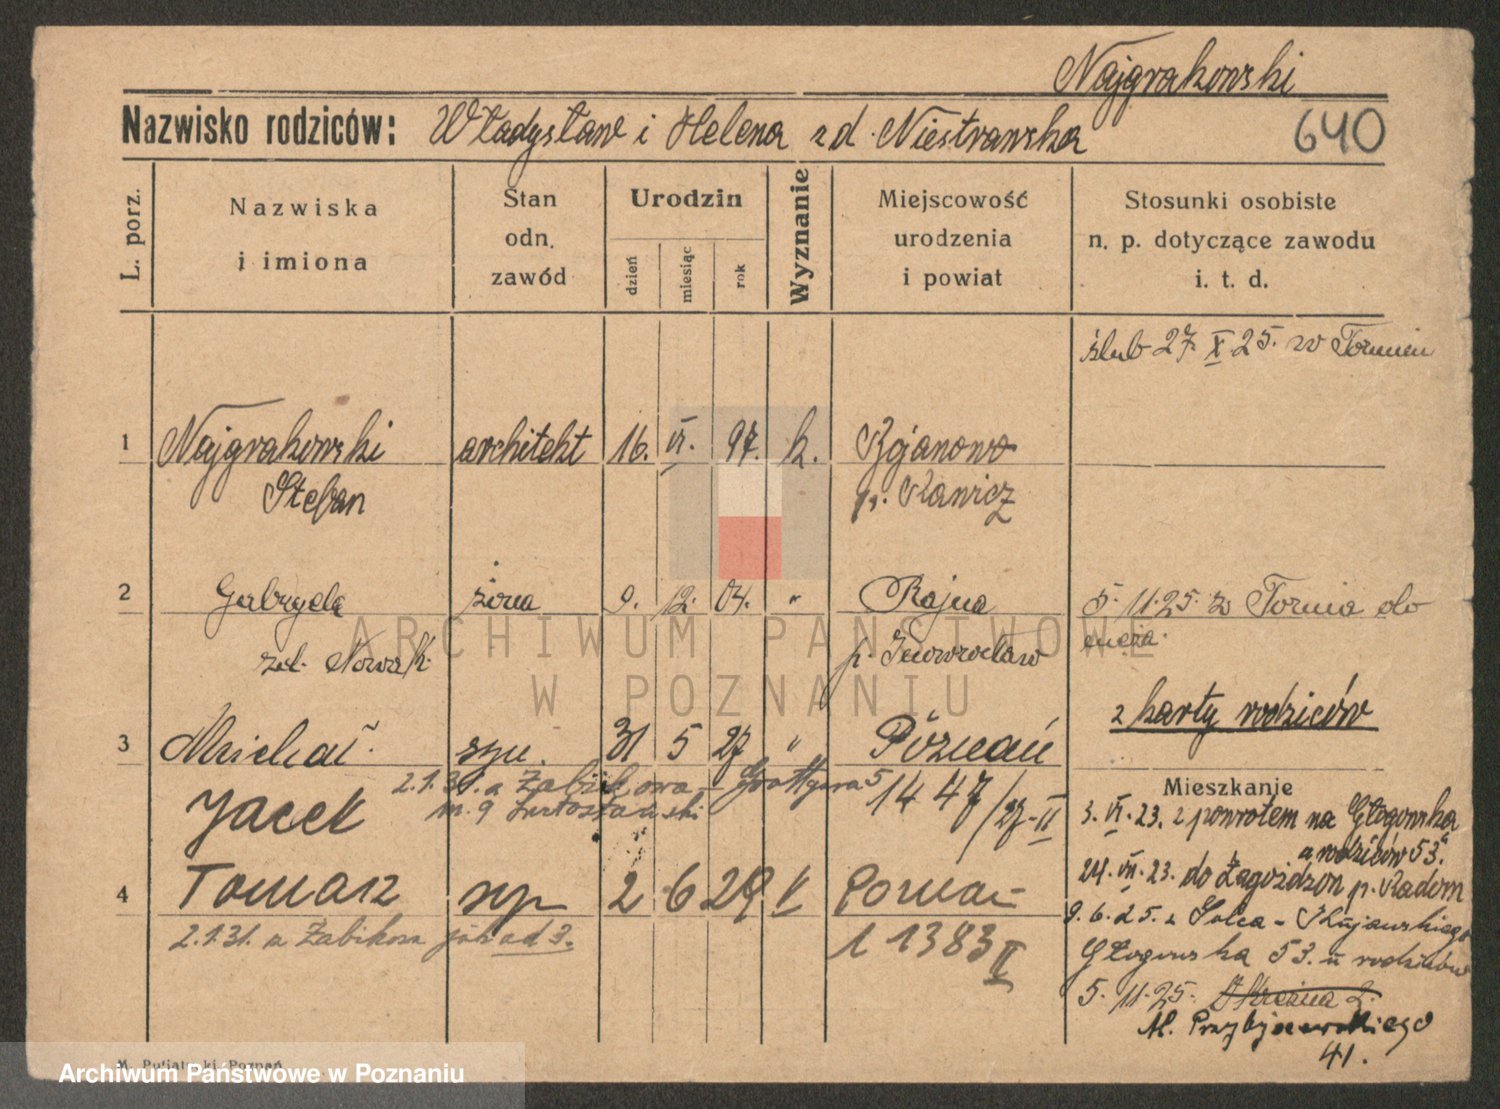 Najgrakowski
Nazwisko rodziców: Władysław i Helena z d. Niestrawska
640
L. porz.
Nazwiska
i imiona
Stan
odn.
zawód
Urodzin
dzień
miesiąc
rok
Wyznanie
Miejscowość
urodzenia
i powiat
Stosunki osobiste
n. p. dotyczące zawodu
i. t. d.
ślub 27 X 25. w Toruniu
1 Najgrakowski architekt 16. VI. 97. k. Bojanowo
Stefan p. Rawicz
2 Gabryela żona 9. 12. 04. " Rajna 5. 11. 25. z Torunia do
męża.
zd. Nowak p. Inowrocław
z karty rodziców
3 Michał syn. 31 5 27 " Poznań
2.1.31. a Żabikowa 1447/27-II
Jacek m. 9
Mieszkanie
3. VI. 23. z powrotem na Głogowska
u rodziców 53.
24. VII. 23. do Zagożdżon p. Radom
4 Tomasz syn 2 6 29 k Poznań
9. 6. 25. z Solca - Kujawskiego
2.1.31. a Żabikowa jak ad 3. 1 1383 II
Głogowska 53. u rodziców
5. 11. 25.
M. Przybyszewskiego
41.
ARCHIWUM PAŃSTWOWE
W POZNANIU
Poznań
Archiwum Państwowe w Poznaniu